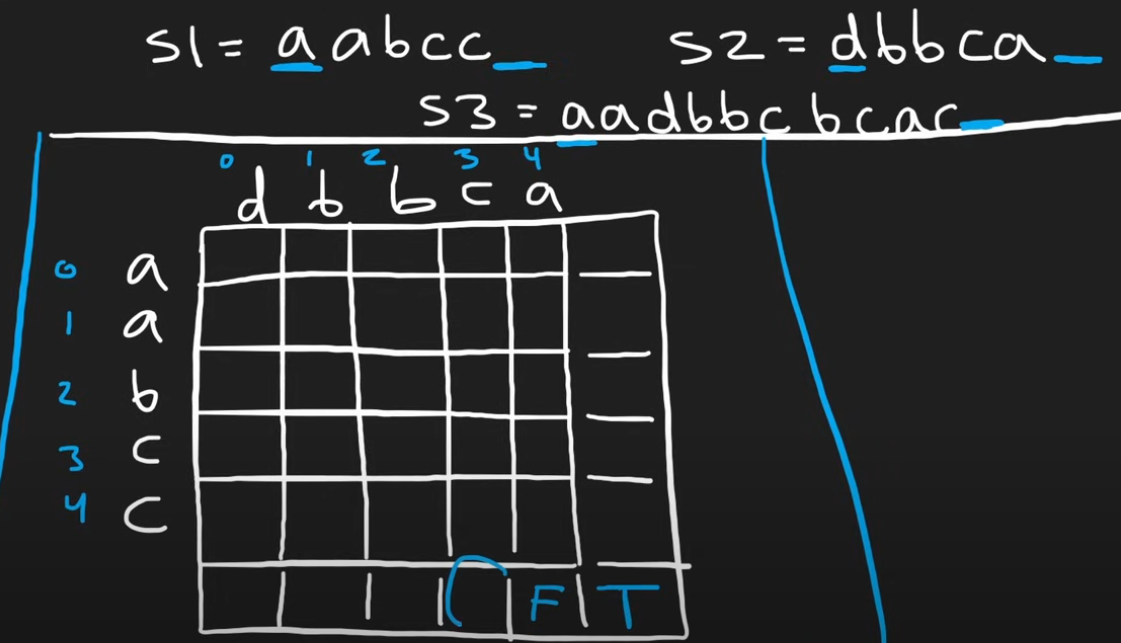 s1 = aabcc_ s2 = dbbca_
s3 = aadbbcbcac_
0 1 2 3 4
d b b c a
0 a
1 a
2 b
3 c
4 c
F T